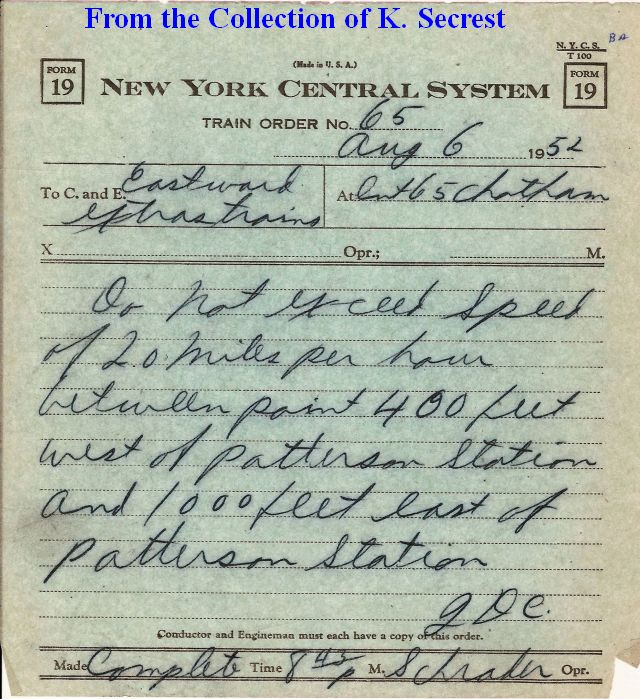 From the Collection of K. Secrest
BA
N. Y. C. S.
T 100
(Made in U. S. A.)
FORM 19
NEW YORK CENTRAL SYSTEM
FORM 19
TRAIN ORDER No. 65
Aug 6 1952
To C. and E. Eastward
extras trains
At Int 65 Chatham
X Opr.; M.
Do Not exceed Speed
of 20 miles per hour
between point 400 feet
west of Patterson Station
and 1000 feet east of
Patterson Station
Conductor and Engineman must each have a copy of this order.
Made Complete Time 8 45 p M. Schrader Opr.